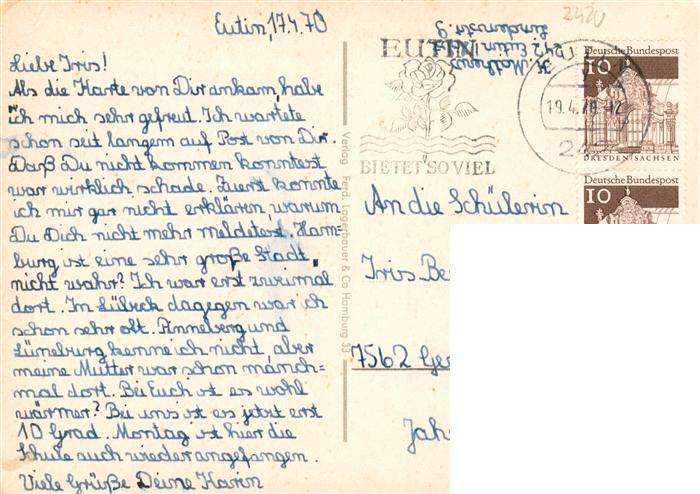 Eutin, 17.4.70
Liebe Iris!
Als die Karte von Dir ankam, habe
ich mich sehr gefreut. Ich wartete
schon seit langem auf Post von Dir.
Daß Du nicht kommen konntest
war wirklich schade. Zuerst konnte
ich mir gar nicht erklären, warum
Du Dich nicht mehr meldetest. Ham-
burg ist eine sehr große Stadt,
nicht wahr? Ich war erst zweimal
dort. In Lübeck dagegen war ich
schon sehr oft. Pinneberg und
Lüneburg kenne ich nicht, aber
meine Mutter war schon manch=
mal dort. Bei Euch ist es wohl
wärmer? Bei uns ist es jetzt erst
10 Grad. Montag ist hier die
Schule auch wieder angefangen.
Viele Grüße Deine Karin
Verlag Ferd. Lagerbauer & Co Hamburg 33
242 Eutin
Lindenstr. 9
EUTIN
BIETET SO VIEL
19.4.70
Deutsche Bundespost
10
DRESDEN/SACHSEN
Deutsche Bundespost
10
An die Schülerin
Iris Be
7562 Ger
Jah